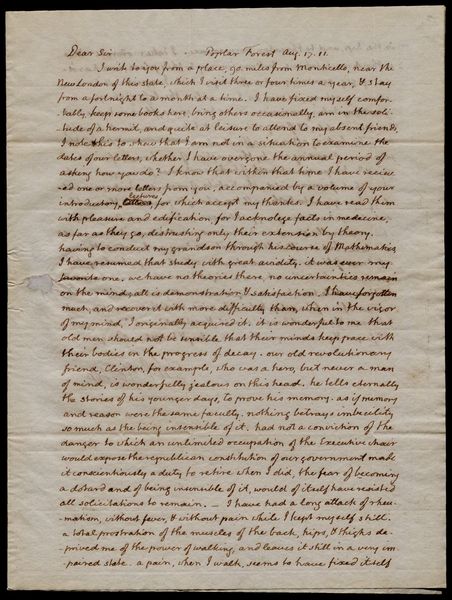 Dear Sir Poplar Forest Aug. 17. 11.
I write to you from a place, 90. miles from Monticello, near the
New London of this state, which I visit three or four times a year, & stay
from a fortnight to a month at a time. I have fixed myself comfor-
-tably, keep some books here, bring others occasionally, am in the soli-
-tude of a hermit, and quite at leisure to attend to my absent friends,
I note this to shew that I am not in a situation to examine the
dates of our letters, whether I have overgone the annual period of
asking how you do? I know that within that time I have receiv-
-ed one or more letters from you, accompanied by a volume of your
introductory lectures, for which accept my thanks. I have read them
with pleasure and edification, for I acknolege facts in medicine,
as far as they go, distrusting only their extension by theory.
having to conduct my grandson through his course of Mathematics,
I have resumed that study with great avidity. it was ever my
favorite one. we have no theories there, no uncertainties remain
on the mind; all is demonstration & satisfaction. I have forgotten
much, and recover it with more difficulty than when in the vigor
of my mind, I originally acquired it. it is wonderful to me that
old men should not be sensible that their minds keep pace with
their bodies in the progress of decay. our old revolutionary
friend, Clinton, for example, who was a hero, but never a man
of mind, is wonderfully jealous on this head. he tells eternally
the stories of his younger days, to prove his memory. as if memory
and reason were the same faculty. nothing betrays imbecility
so much as the being insensible of it. had not a conviction of the
danger to which an unlimited occupation of the Executive chair
would expose the republican constitution of our government made
it conscientiously a duty to retire when I did, the fear of becoming
a dotard and of being insensible of it, would of itself have resisted
all solicitations to remain. — I have had a long attack of rheu-
-matism, without fever, & without pain while I keep myself still.
a total prostration of the muscles of the back, hips, & thighs de-
-prived me of the power of walking, and leaves it still in a very im-
-paired state. a pain, when I walk, seems to have fixed itself